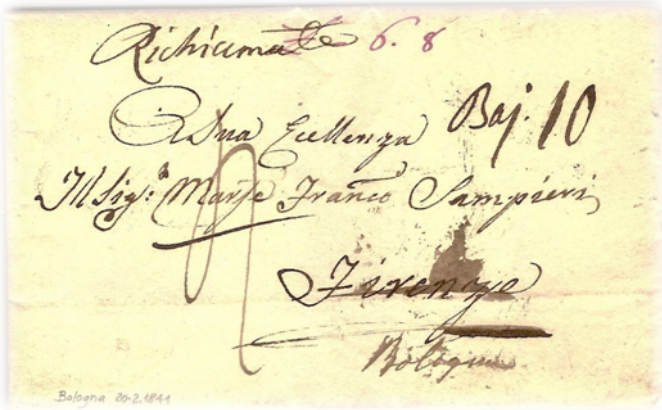 Richiamate 6. 8
A Sua Eccellenza Baj. 10
Il Sig.r Marse Franco Sampieri
Firenze
Bologna
Bologna 20-2.1841